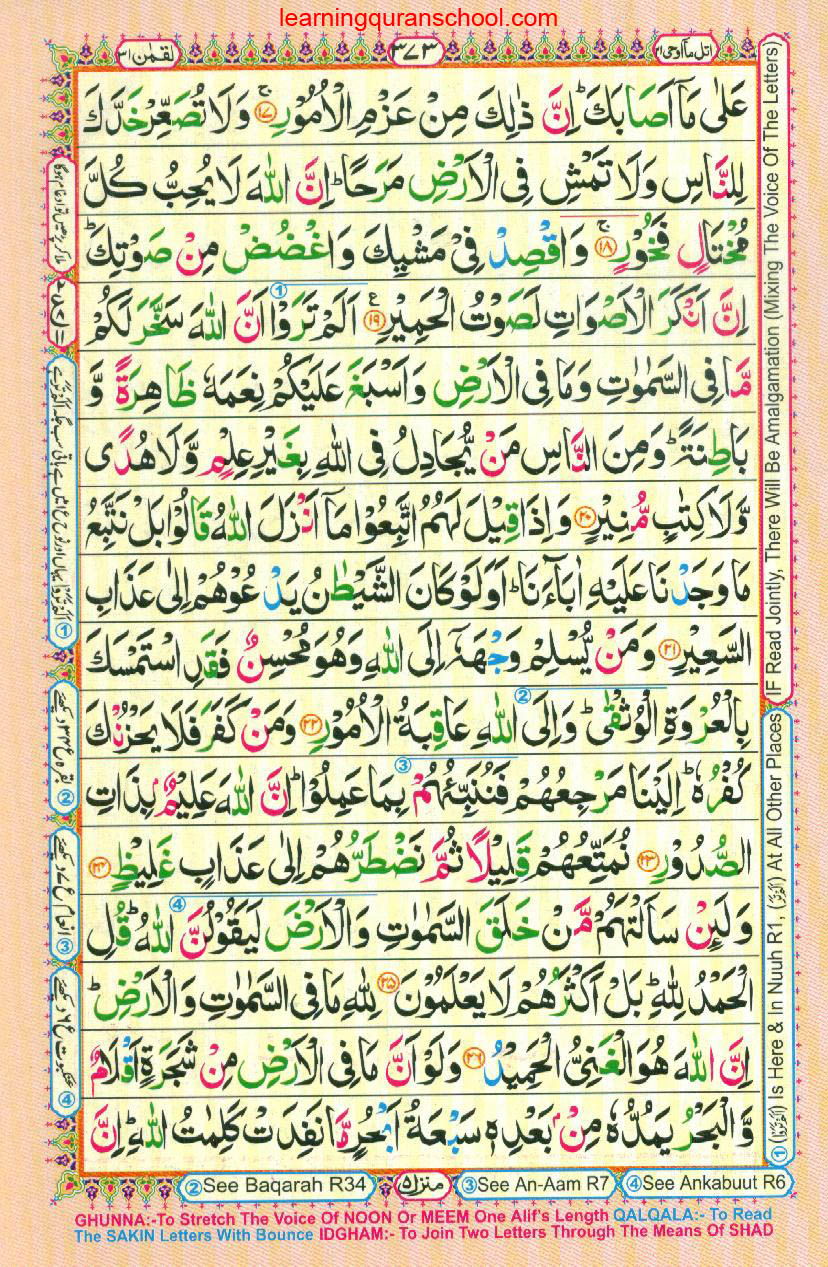 learningquranschool.com
لقمٰن ٣١
٣٧٣
اتل مآ اوحی ٢١
عَلٰى مَاۤ اَصَابَكَ ؕ اِنَّ ذٰلِكَ مِنْ عَزْمِ الْاُمُوْرِ ۚ ﴿١٧﴾ وَلَا تُصَعِّرْ خَدَّكَ
لِلنَّاسِ وَلَا تَمْشِ فِى الْاَرْضِ مَرَحًا ؕ اِنَّ اللّٰهَ لَا يُحِبُّ كُلَّ
مُخْتَالٍ فَخُوْرٍ ۚ ﴿١٨﴾ وَاقْصِدْ فِىْ مَشْيِكَ وَاغْضُضْ مِنْ صَوْتِكَ ؕ
اِنَّ اَنْكَرَ الْاَصْوَاتِ لَصَوْتُ الْحَمِيْرِ ﴿١٩﴾ ع اَلَمْ تَرَوْا اَنَّ اللّٰهَ سَخَّرَ لَكُمْ ①
مَّا فِى السَّمٰوٰتِ وَمَا فِى الْاَرْضِ وَاَسْبَغَ عَلَيْكُمْ نِعَمَهٗ ظَاهِرَةً وَّ
بَاطِنَةً ؕ وَمِنَ النَّاسِ مَنْ يُّجَادِلُ فِى اللّٰهِ بِغَيْرِ عِلْمٍ وَّلَا هُدًى
وَّلَا كِتٰبٍ مُّنِيْرٍ ﴿٢٠﴾ وَاِذَا قِيْلَ لَهُمُ اتَّبِعُوْا مَاۤ اَنْزَلَ اللّٰهُ قَالُوْا بَلْ نَتَّبِعُ
مَا وَجَدْنَا عَلَيْهِ اٰبَآءَنَا ؕ اَوَلَوْ كَانَ الشَّيْطٰنُ يَدْعُوْهُمْ اِلٰى عَذَابِ
السَّعِيْرِ ﴿٢١﴾ وَمَنْ يُّسْلِمْ وَجْهَهٗۤ اِلَى اللّٰهِ وَهُوَ مُحْسِنٌ فَقَدِ اسْتَمْسَكَ
بِالْعُرْوَةِ الْوُثْقٰى ؕ وَاِلَى اللّٰهِ عَاقِبَةُ الْاُمُوْرِ ﴿٢٢﴾ وَمَنْ كَفَرَ فَلَا يَحْزُنْكَ ②
كُفْرُهٗ ؕ اِلَيْنَا مَرْجِعُهُمْ فَنُنَبِّئُهُمْ بِمَا عَمِلُوْا ؕ اِنَّ اللّٰهَ عَلِيْمٌۢ بِذَاتِ ③
الصُّدُوْرِ ﴿٢٣﴾ نُمَتِّعُهُمْ قَلِيْلًا ثُمَّ نَضْطَرُّهُمْ اِلٰى عَذَابٍ غَلِيْظٍ ﴿٢٤﴾
وَلَئِنْ سَاَلْتَهُمْ مَّنْ خَلَقَ السَّمٰوٰتِ وَالْاَرْضَ لَيَقُوْلُنَّ اللّٰهُ ؕ قُلِ ④
الْحَمْدُ لِلّٰهِ ؕ بَلْ اَكْثَرُهُمْ لَا يَعْلَمُوْنَ ﴿٢٥﴾ لِلّٰهِ مَا فِى السَّمٰوٰتِ وَالْاَرْضِ ؕ
اِنَّ اللّٰهَ هُوَ الْغَنِىُّ الْحَمِيْدُ ﴿٢٦﴾ وَلَوْ اَنَّ مَا فِى الْاَرْضِ مِنْ شَجَرَةٍ اَقْلَامٌ
وَّالْبَحْرُ يَمُدُّهٗ مِنْۢ بَعْدِهٖ سَبْعَةُ اَبْحُرٍ مَّا نَفِدَتْ كَلِمٰتُ اللّٰهِ ؕ اِنَّ
IF Read Jointly, There Will Be Amalgamation (Mixing The Voice Of The Letters)
① (اَلَمْ تَرَوْا) Is Here & In Nuuh R1, (اَلَمْ تَرَ) At All Other Places
② بقرہ ع ٣٤ دیکھئے
③ انعام ع ٧ دیکھئے
④ عنکبوت ع ٦ دیکھئے
② See Baqarah R34
منزل ٥
③ See An-Aam R7
④ See Ankabuut R6
GHUNNA:-To Stretch The Voice Of NOON Or MEEM One Alif's Length QALQALA:- To Read
The SAKIN Letters With Bounce IDGHAM:- To Join Two Letters Through The Means Of SHAD